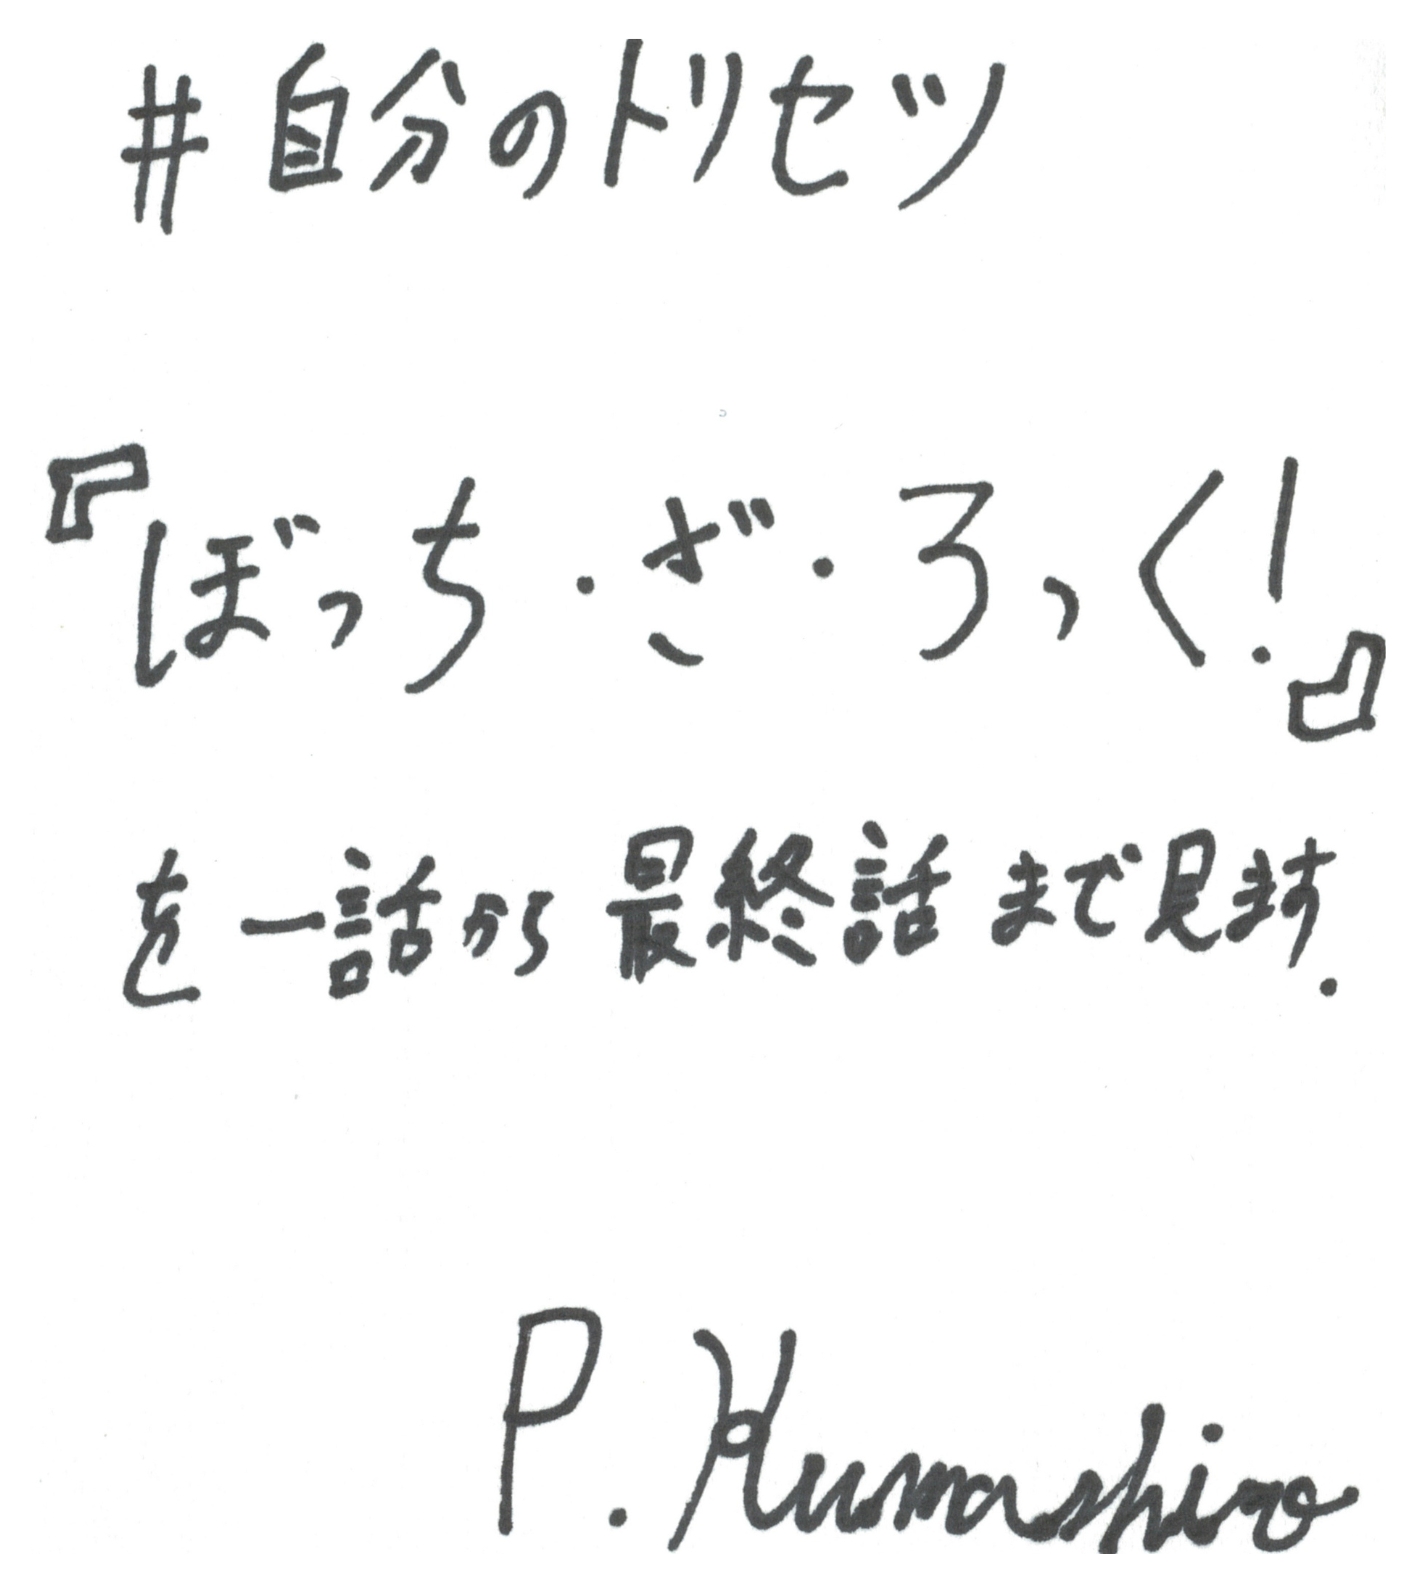 #自分のトリセツ
『ぼっち・ざ・ろっく!』
を一話から最終話まで見ます.
P. Kumashiro